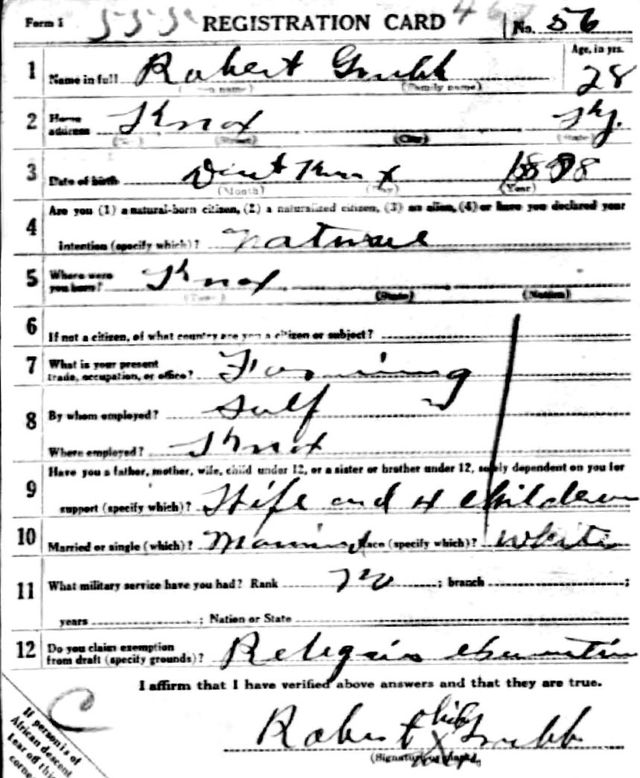 Form 1 555 REGISTRATION CARD No. 56
1 Name in full Robert Grubb Age, in yrs. 28
(Family name)
2 Home address Knox Ky.
(No.) (Street) (City) (State)
3 Date of birth Dont Know
(Month) (Day) (Year)
4 Are you (1) a natural-born citizen, (2) a naturalized citizen, (3) an alien, (4) or have you declared your
intention (specify which)? Natural
5 Where were you born? Knox
(Town) (State) (Nation)
6 If not a citizen, of what country are you a citizen or subject?
7 What is your present trade, occupation, or office? Farming
8 By whom employed? Self
Where employed? Knox
9 Have you a father, mother, wife, child under 12, or a sister or brother under 12, solely dependent on you for
support (specify which)? Wife and 4 children
10 Married or single (which)? Married Race (specify which)? White
11 What military service have you had? Rank no ; branch ;
years ; Nation or State
12 Do you claim exemption from draft (specify grounds)? Religain
I affirm that I have verified above answers and that they are true.
C
Robert his X Grubb
(Signature or mark)
If person is of
African descent
tear off this
corner